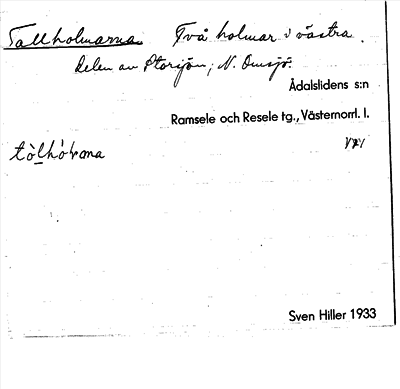 Tallholmarna Två holmar i västra
delen av Storsjön, N. Omsjö.
Ådalslidens s:n
Ramsele och Resele tg., Västernorrl. l.
Sven Hiller 1933